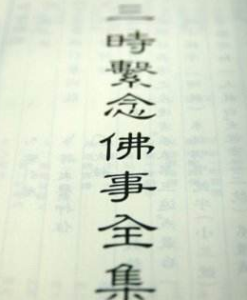 三時繫念佛事全集